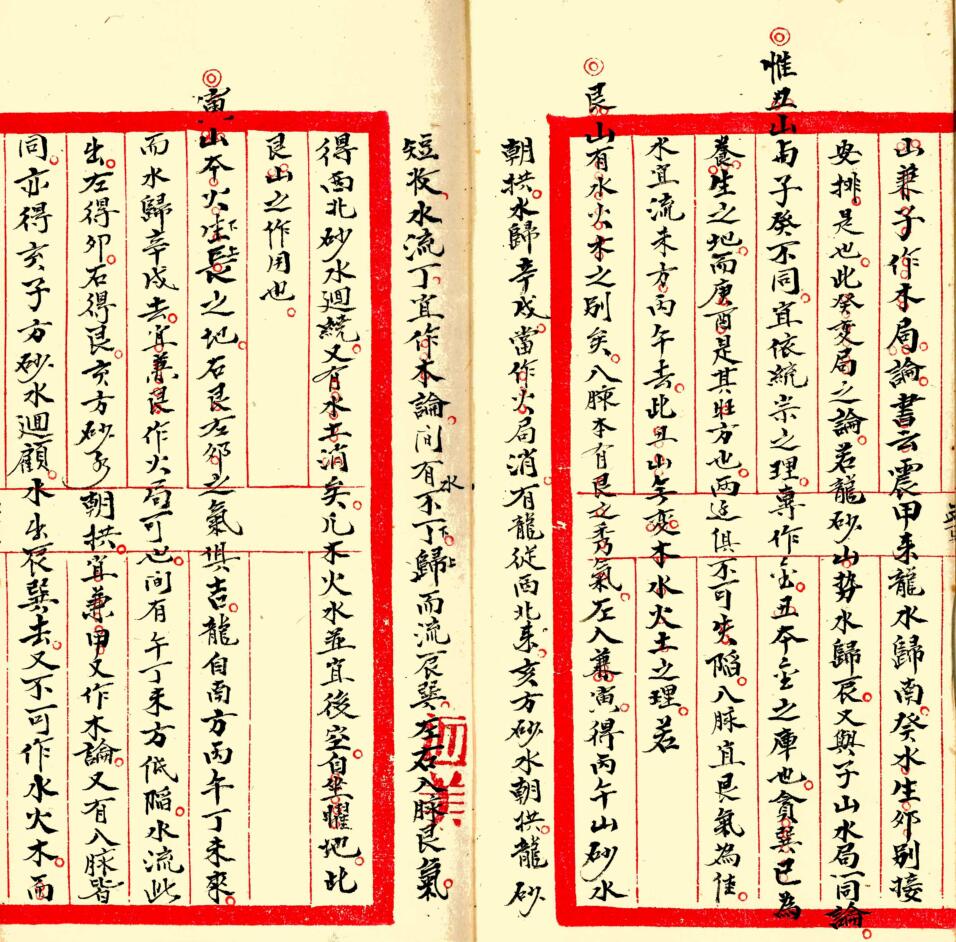 山兼子作木局論書云震甲来龍水歸南癸水生卯别接
安排是也此癸变局之論若龍砂山勢水歸辰又與子山水局同論
惟丑山与子癸不同宜依統宗之理專作金丑本金之庫也貪巽巳為
養生之地而庚酉是其旺方也两边俱不可失陷入脉宜艮氣為佳
水宜流未方丙午去此丑山無变木水火土之理若
艮山有水火木之别矣入脉本有艮之秀氣左入兼寅得丙午山砂水
朝拱水歸辛戌當作火局消有龍從西北来亥方砂水朝拱龍砂
短收水流丁宜作木論间有水不丁歸而流辰巽左右入脉艮氣
得西北砂水廻繞又有水土消矣凡木火水並宜後空自坐曜地此
艮山之作用也
寅山本火生長之地右艮左卯之氣俱吉龍自南方丙午丁未來
而水歸辛戌去宜兼艮作火局可也间有午丁未方低陷水流此
出左得卯右得艮亥方砂水朝拱宜兼甲又作木論又有入脉皆
同亦得亥子方砂水廻顧水出辰巽去又不可作水火木而